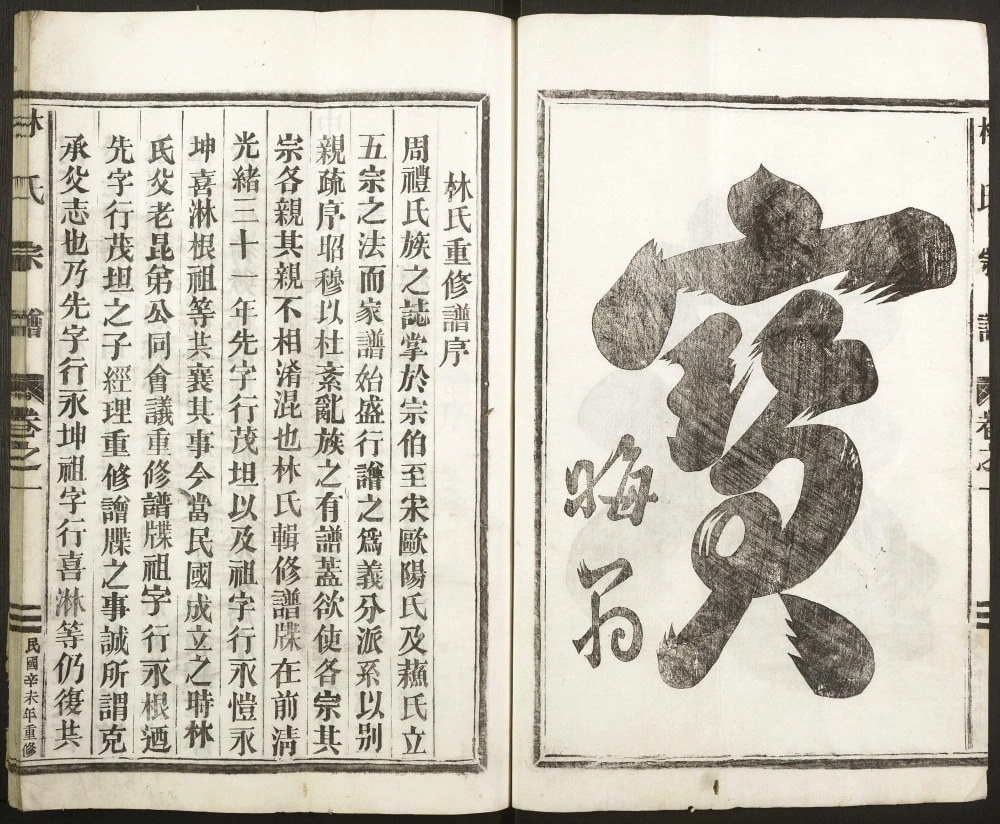 林氏宗譜 卷之一
寶
晦翁
林氏重修譜序
周禮氏族之誌掌於宗伯至宋歐陽氏及蘓氏立
五宗之法而家譜始盛行譜之爲義分派系以别
親疏序昭穆以杜紊亂族之有譜蓋欲使各宗其
宗各親其親不相淆混也林氏輯修譜牒在前清
光緒三十一年先字行茂坦以及祖字行永愷永
坤喜淋根祖等共襄其事今當民國成立之時林
氏父老昆弟公同會議重修譜牒祖字行永根迺
先字行茂坦之子經理重修譜牒之事誠所謂克
承父志也乃先字行永坤祖字行喜淋等仍復共
林氏 宗譜 卷之一 民國辛未年重修